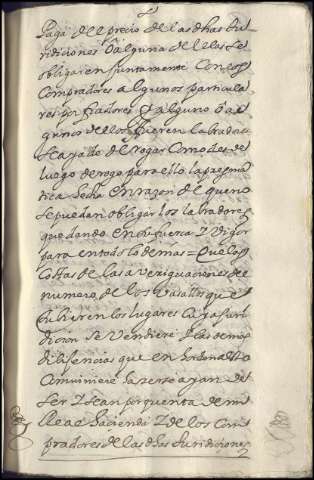 Paga del precio de las dhas Ju-
ridiciones o alguna dellas se
obligaren juntamente con los
Compradores algunos particula-
res por fiadores y alguno o al
gunos dellos fueren labradores
se aya de derogar Como des de
luego derogo para ello la pregma
tica hecha En razon de que no
se puedan obligar los labradores
quedando en su fuerza y vigor
para en todo lo demas = Que las
costas de las averiguaciones de el
numero de los vasallos que
hubiere en los lugares Cuya Juri
dicion se vendiere y las demas
diligencias que en horden a ello
Comviniere hazerse ayan de
ser y sean por quenta de mi
Real hacienda y de los Com
pradores de las dhas Juridiciones